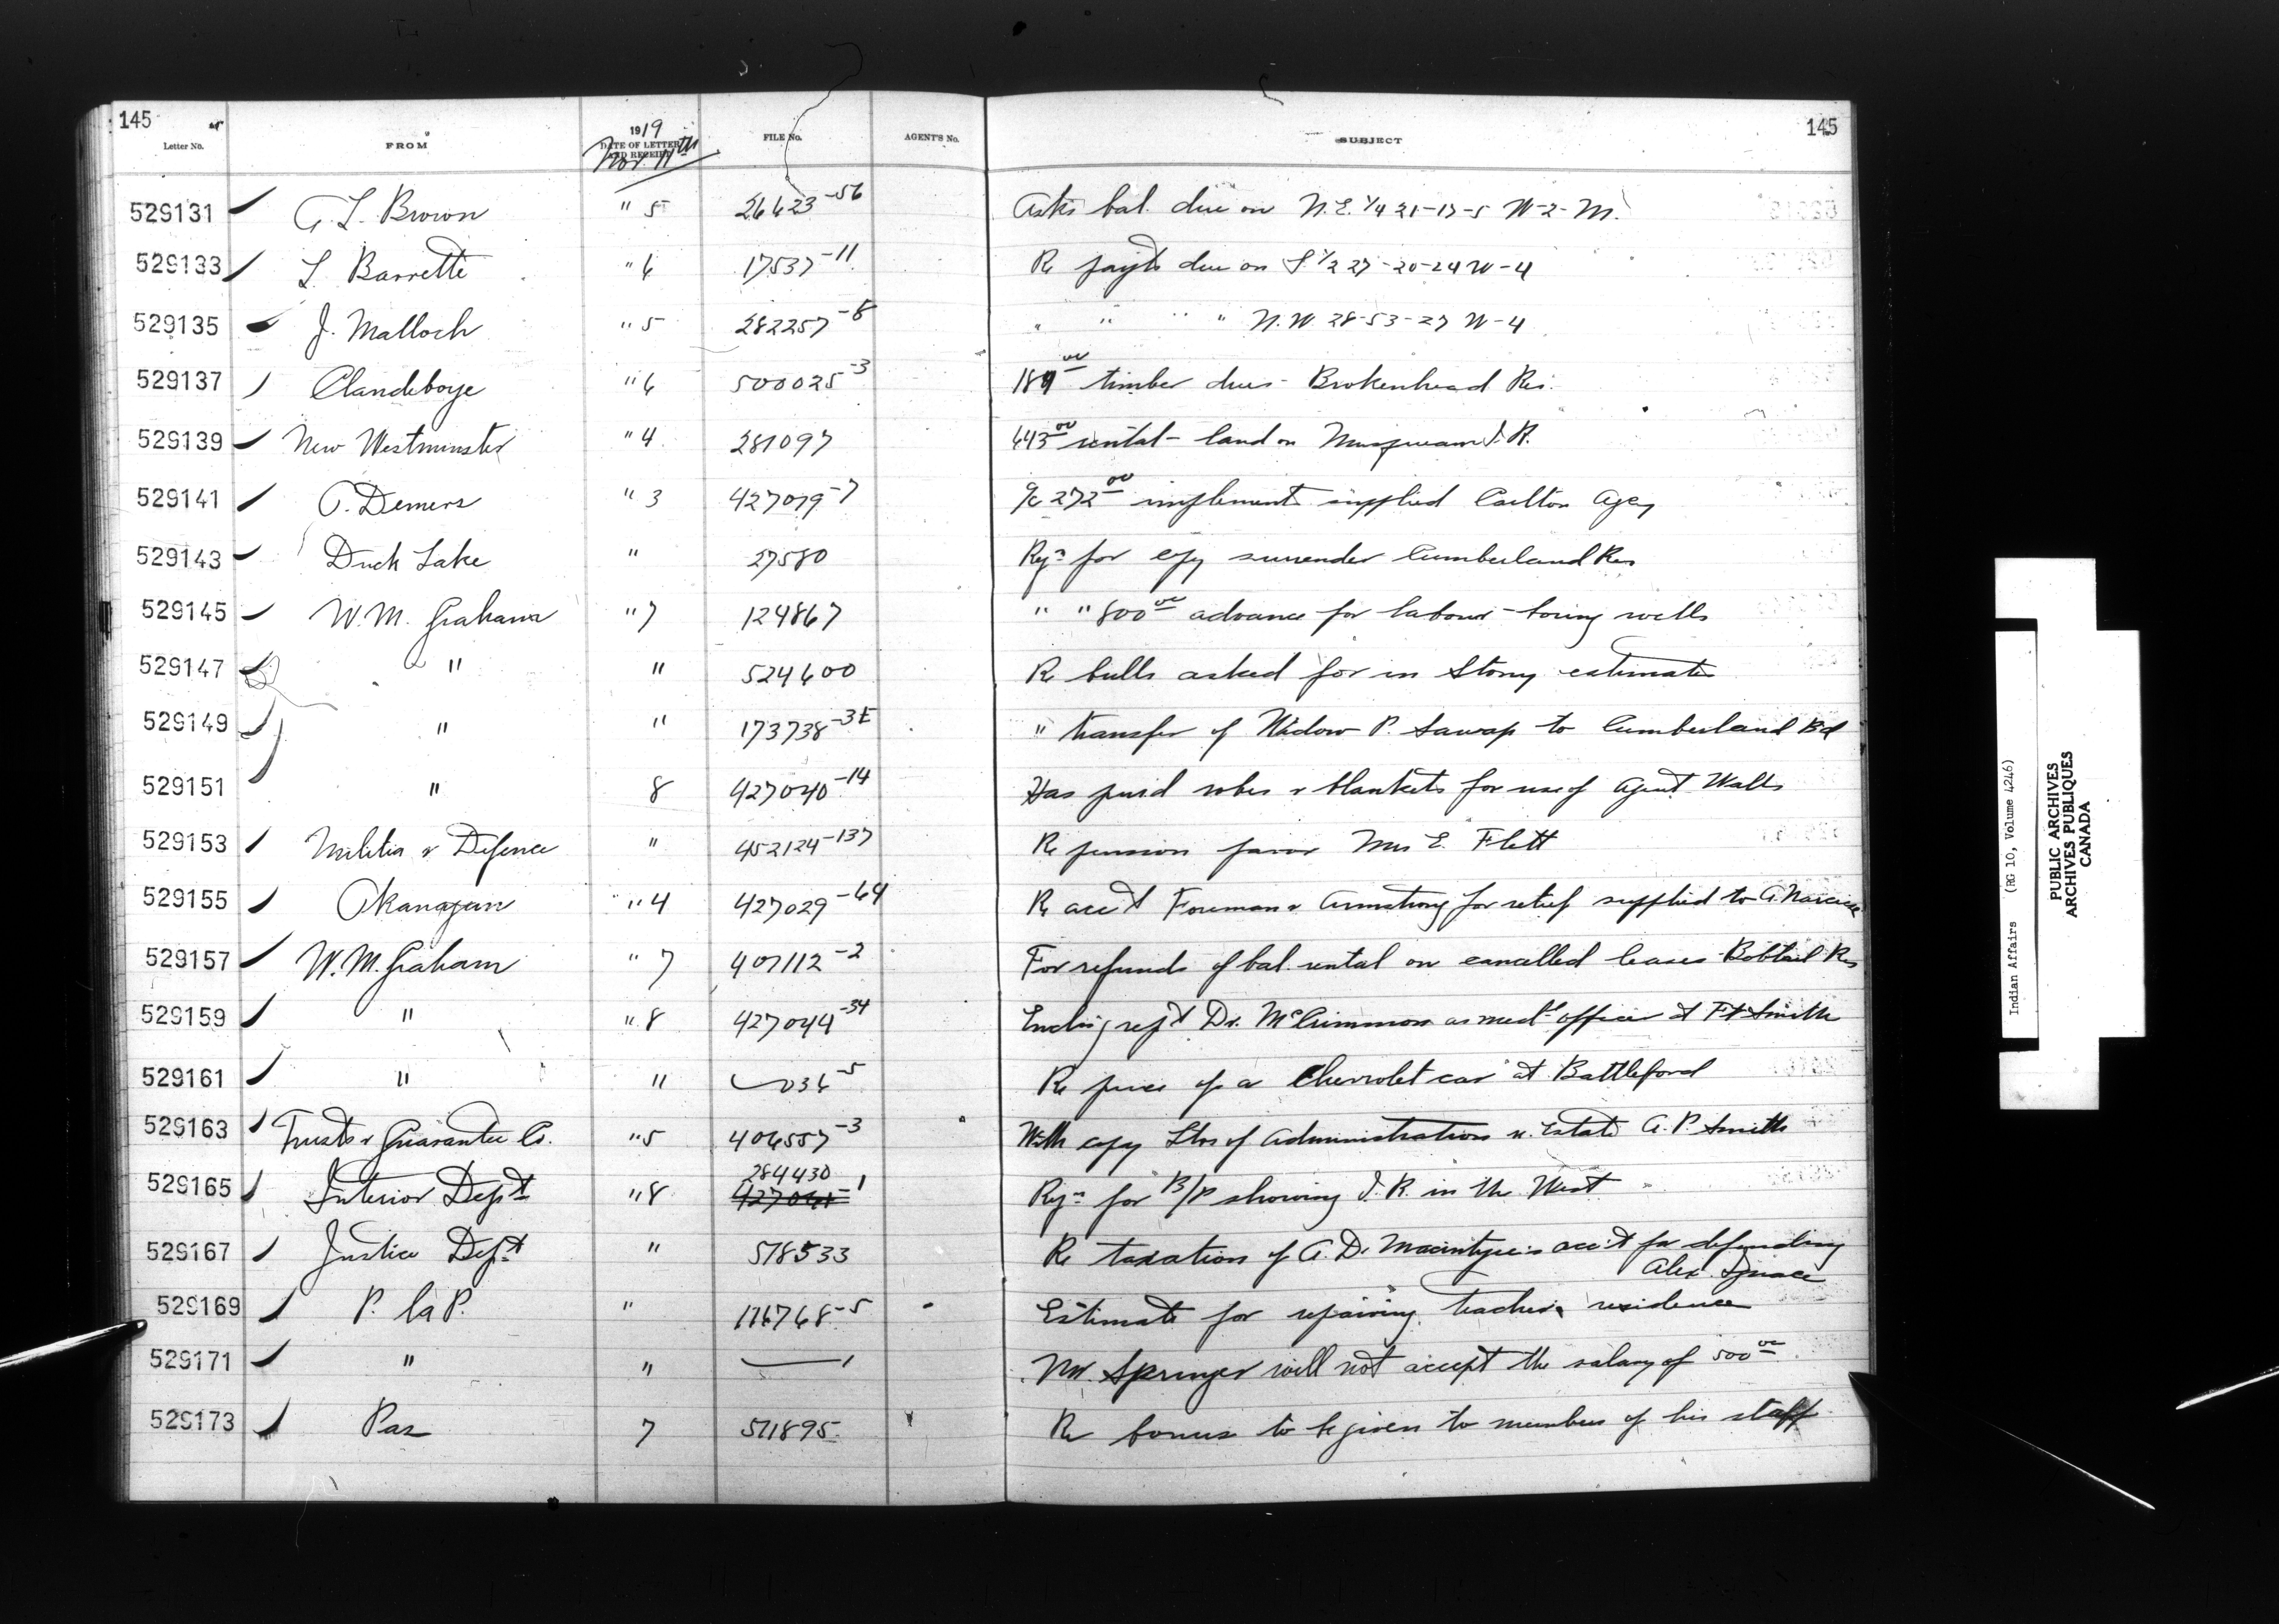 145 145
Letter No. FROM 1919 DATE OF LETTER AND RECEIPT FILE No. AGENT'S No. SUBJECT
Nov. 11th
529131 A. L. Brown " 5 26623-56 Asks bal. due on N.E. 1/4 21-17-5 W-2-M.
529133 L. Barrette " 6 17537-11 Re payts due on S. 1/2 27-20-24 W-4
529135 J. Malloch " 5 282257-8 " " " " N.W. 28-53-27 W-4
529137 Clandeboye " 6 500025-3 timber dues - Brokenhead Res.
529139 New Westminster " 4 281097 443 00 rental - land on Musqueam I.R.
529141 Demers " 3 427079-7 a/c 272 00 implements supplied Carlton Agcy
529143 Duck Lake " 27580 Reqn for copy surrender Cumberland Res
529145 W. M. Graham " 7 124867 " " 800 00 advance for labour - boring wells
529147 " " 524600 Re bulls asked for in Stony estimates
529149 " " 173738 " transfer of Widow P. to Cumberland Bd
529151 " 8 427040-14 Has purd robes & blankets for use of Agent Walls
529153 Militia & Defence " 452124-137 Re pension favor Mrs E. Flett
529155 Okanagan " 4 427029-64 Re acct Foreman & Armstrong for relief supplied to A. Narcisse
529157 W. M. Graham " 7 407112-2 For refunds of bal. rental on cancelled leases - Bobtail Res
529159 " " 8 427044-34 Dr. McCrimmon as medl officer at Ft Smith
529161 " " 036-5 Re price of a Chevrolet car at Battleford
529163 Trusts & Guarantee Co. " 5 406557-3 With copy Ltrs of Administration re. Estate A. P. Smith
284430
529165 Interior Dept " 8 427041-1 Reqn for B/P showing I. R. in the West
529167 Justice Dept " 518533 Re taxation of A. D. Macintyre's acc't for defending
Alex Ignace
529169 P. la P. " 116768-5 Estimate for repairing teacher's residence
529171 " " 1 Mr. Springer will not accept the salary of 500 00
529173 Pas 7 511895 Re bonus to be given to members of his staff
Indian Affairs (RG 10, Volume 4246)
PUBLIC ARCHIVES
ARCHIVES PUBLIQUES
CANADA